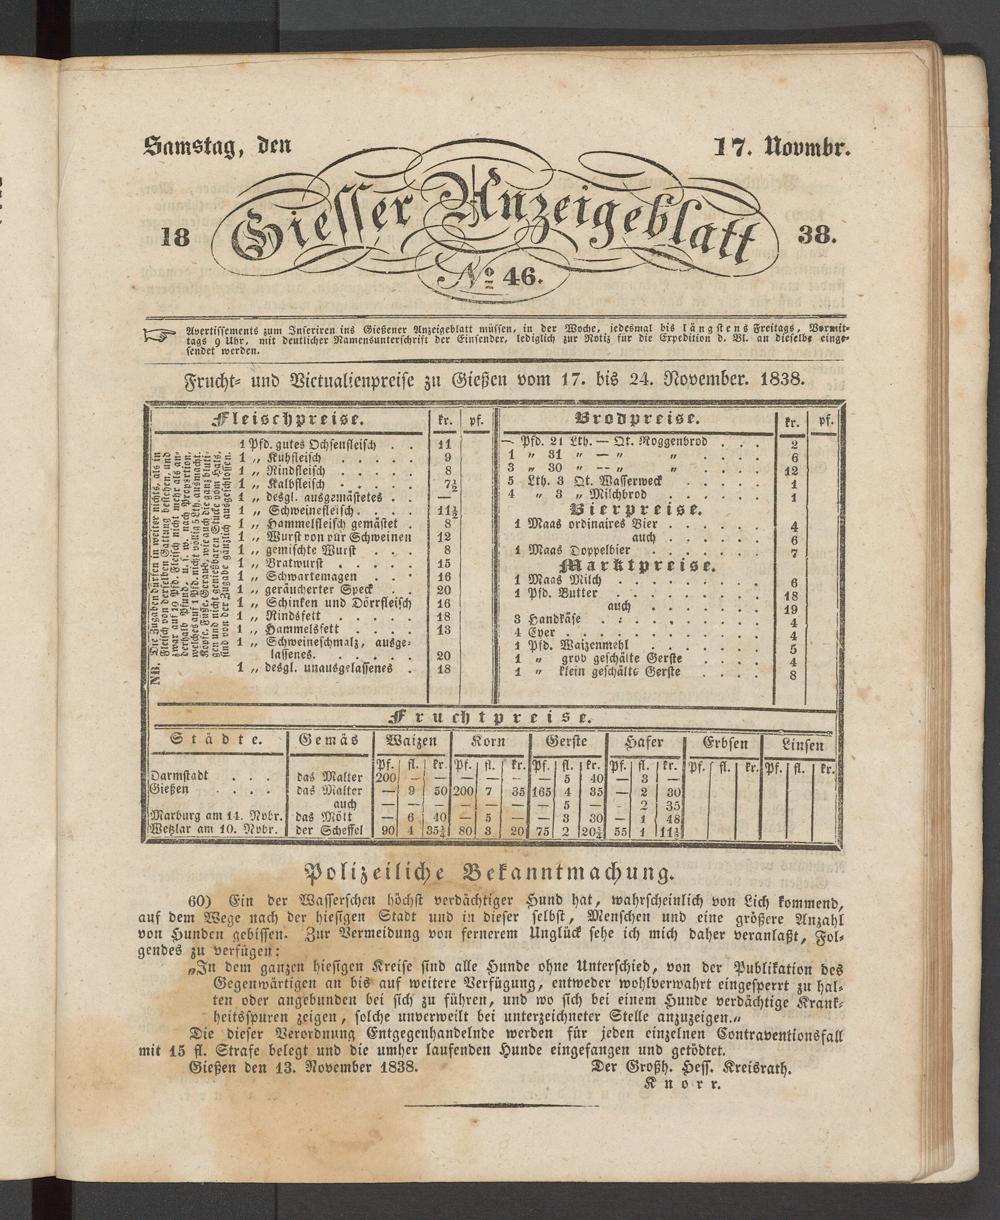 Samstag, den 17. Novmbr.
Giesser Anzeigeblatt
18 38.
No 46.
Avertissements zum Inseriren ins Gießener Anzeigeblatt müssen, in der Woche, jedesmal bis längstens Freitags, Vormit-
tags 9 Uhr, mit deutlicher Namensunterschrift der Einsender, lediglich zur Notiz für die Expedition d. Bl. an dieselbe einge-
sendet werden.
Frucht- und Victualienpreise zu Gießen vom 17. bis 24. November. 1838.
Fleischpreise. kr. pf.
NB. Die Zugaben dürfen in weiter nichts, als in
Fleisch von derselben Gattung bestehen, und
zwar auf 10 Pfd. Fleisch nicht mehr als an-
derhalb Pfund u. s. w. nach Proportion,
welches auf 1 Pfd. nicht völlig 5 Lth. ausmacht.
Köpfe, Füße, Geraub, wie auch die ganz bluti-
gen und nicht genießbaren Stücke vom Hals,
sind von der Zugabe gänzlich ausgeschlossen.
1 Pfd. gutes Ochsenfleisch . . 11
1 „ Kuhfleisch . . . . . 9
1 „ Rindfleisch . . . . 8
1 „ Kalbfleisch . . . . 7½
1 „ desgl. ausgemästetes . . —
1 „ Schweinefleisch . . . 11½
1 „ Hammelfleisch gemästet . 8
1 „ Wurst von pur Schweinen 12
1 „ gemischte Wurst . . . 8
1 „ Bratwurst . . . . . 15
1 „ Schwartemagen . . . 16
1 „ geräucherter Speck . . 20
1 „ Schinken und Dörrfleisch 16
1 „ Rindsfett . . . . . 18
1 „ Hammelsfett . . . . 13
1 „ Schweineschmalz, ausge-
lassenes. . . . . . 20
1 „ desgl. unausgelassenes . 18
Brodpreise. kr. pf.
— Pfd. 21 Lth. — Qt. Roggenbrod . . . 2
1 „ 31 „ — „ „ . . . . 6
3 „ 30 „ — „ „ . . . . 12
5 Lth. 3 Qt. Wasserweck . . . . . 1
4 „ 3 „ Milchbrod . . . . . 1
Bierpreise.
1 Maas ordinaires Bier . . . . . 4
auch . . . . . 6
1 Maas Doppelbier . . . . . 7
Marktpreise.
1 Maas Milch . . . . . . . 6
1 Pfd. Butter . . . . . . . 18
auch . . . . . . 19
3 Handkäse . . . . . . . 4
4 Eyer . . . . . . . . 4
1 Pfd. Waizenmehl . . . . . . 5
1 „ grob geschälte Gerste . . . . 4
1 „ klein geschälte Gerste . . . . 8
Fruchtpreise.
Städte. Gemäs Waizen Korn Gerste Hafer Erbsen Linsen
Pf. fl. kr. Pf. fl. kr. Pf. fl. kr. Pf. fl. kr. Pf. fl. kr. Pf. fl. kr.
Darmstadt . . . das Malter 200 — — — — — — 5 40 — 3 —
Gießen . . . . das Malter — 9 50 200 7 35 165 4 35 — 2 30
auch — — — — — — — 5 — — 2 35
Marburg am 14. Nvbr. das Mött — 6 40 — 5 — — 3 30 — 1 48
Wetzlar am 10. Nvbr. der Scheffel 90 4 35¾ 80 3 20 75 2 20¾ 55 1 11½
Polizeiliche Bekanntmachung.
60) Ein der Wasserscheu höchst verdächtiger Hund hat, wahrscheinlich von Lich kommend,
auf dem Wege nach der hiesigen Stadt und in dieser selbst, Menschen und eine größere Anzahl
von Hunden gebissen. Zur Vermeidung von fernerem Unglück sehe ich mich daher veranlaßt, Fol-
gendes zu verfügen:
„In dem ganzen hiesigen Kreise sind alle Hunde ohne Unterschied, von der Publikation des
Gegenwärtigen an bis auf weitere Verfügung, entweder wohlverwahrt eingesperrt zu hal-
ten oder angebunden bei sich zu führen, und wo sich bei einem Hunde verdächtige Krank-
heitsspuren zeigen, solche unverweilt bei unterzeichneter Stelle anzuzeigen.„
Die dieser Verordnung Entgegenhandelnde werden für jeden einzelnen Contraventionsfall
mit 15 fl. Strafe belegt und die umher laufenden Hunde eingefangen und getödtet.
Gießen den 13. November 1838. Der Großh. Hess. Kreisrath.
Knorr.